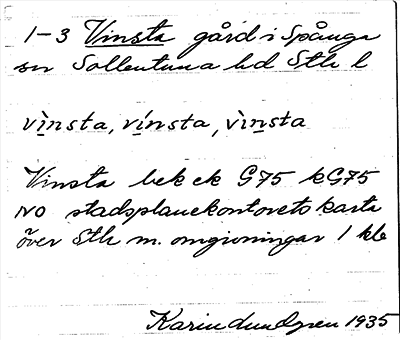 1-3 Vinsta gård i Spånga
sn Sollentuna hd Sth l
vìnsta, vínsta, vìnsta
Vinsta bek ek G75 kG75
NO stadsplanekontorets karta
över Sth m. omgivningar 1 kb
Karin Lundgren 1935